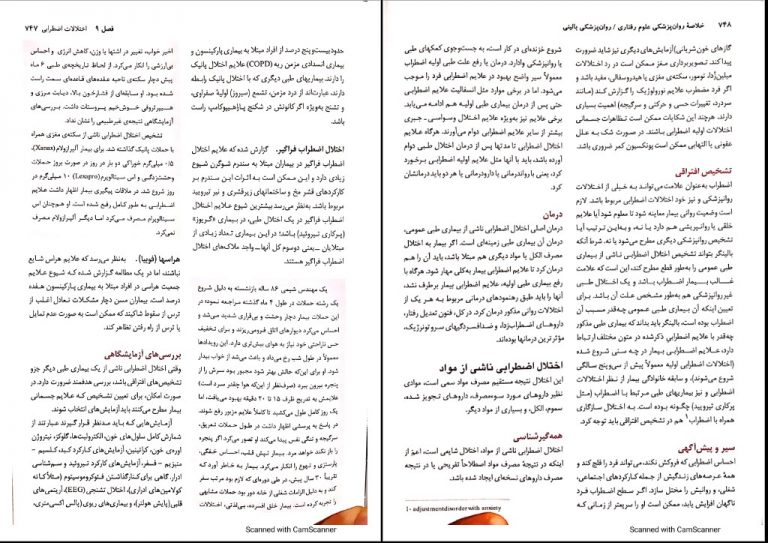 ۷۴۸ خلاصهٔ روان‌پزشکی علوم رفتاری / روان‌پزشکی بالینی
گازهای خون‌شریانی) آزمایش‌های دیگری نیز شاید ضرورت
پیدا کنند. تصویربرداری مغز ممکن است در رد اختلالات
میلین‌زدا، تومور، سکته‌ی مغزی یا هیدروسفالی، مفید باشد و
اگر فرد مضطرب علایم نورولوژیک را گزارش کند (مانند
سردرد، تغییرات حسی و حرکتی و سرگیجه) اهمیت بسیاری
دارند. هرچند این شکایات ممکن است تظاهرات جسمانی
اختلالات اولیه اضطرابی باشند. در صورت شک به علل
عفونی یا التهابی ممکن است پونکسیون کمر ضروری باشد.
تشخیص افتراقی
اضطراب به‌عنوان علامت می‌تواند به خیلی از اختلالات
روانپزشکی و نیز خود اختلالات اضطرابی مربوط باشد. لازم
است وضعیت روانی بیمار معاینه شود تا معلوم شود آیا علایم
خلقی یا روان‌پریشی هم دارد یا نه، و به‌این ترتیب آیا
تشخیص روانپزشکی دیگری مطرح می‌شود یا نه. شرط آنکه
بالینگر بتواند تشخیص اختلال اضطرابی ناشی از بیماری
طبی عمومی را به‌طور قطع مطرح کند، این است که علامت
غالب بیمار اضطراب باشد و یک اختلال طبی
غیرروانپزشکی هم به‌طور مشخص علت آن باشد. برای
تعیین اینکه آن بیماری طبی عمومی چه‌قدر مسبب آن
اضطراب بوده است، بالینگر باید بداند که بیماری طبی مذکور
چه‌قدر با علایم اضطرابیِ ذکرشده در متون مختلف ارتباط
دارد، علایم اضطرابی بیمار در چه سنی شروع شده
(اختلالات اضطرابی اولیه معمولاً پیش از سی‌وپنج سالگی
شروع می‌شوند)، و سابقه خانوادگی بیمار از نظر اختلالات
اضطرابی و نیز بیماریهای طبی مرتبط با اضطراب (مثل
پرکاری تیرویید) چگونه بوده است. به اختلال سازگاری
همراه با اضطراب۱ هم در تشخیص افتراقی باید توجه کرد.
سیر و پیش‌آگهی
احساس اضطرابی که فروکش نکند، می‌تواند فرد را فلج کند و
همهٔ عرصه‌های زندگیش از جمله کارکردهای اجتماعی،
شغلی، و روانیش را مختل سازد. اگر سطح اضطراب فرد
ناگهان افزایش یابد، ممکن است او را سریعتر از زمانی که
شروع خزنده‌ای در کار است، به جست‌وجوی کمکهای طبی
یا روانپزشکی وادارد. درمان یا رفع علت طبی اولیه اضطراب
معمولاً سیر واضح بهبود در علایم اضطرابی فرد را موجب
می‌شود. اما در برخی موارد مثل انسفالیت علایم اضطرابی
حتی پس از درمان بیماری طبی اولیه هم ادامه می‌یابد.
برخی علایم نیز به‌ویژه علایم اختلال وسواسی ـ جبری
بیشتر از سایر علایم اضطرابی دوام می‌آورند. هرگاه علایم
اختلال اضطرابی تا مدتها پس از درمان اختلال طبی دوام
آورده باشد، باید با آنها مثل علایم اولیه اضطرابی برخورد
کرد، یعنی با روان‌درمانی یا دارودرمانی یا هر دو باید درمانشان
کرد.
درمان
درمان اصلی اختلال اضطرابی ناشی از بیماری طبی عمومی،
درمان آن بیماری طبی زمینه‌ای است. اگر بیمار به اختلال
مصرف الکل یا مواد دیگری هم مبتلا باشد، باید آن را هم
درمان کرد تا علایم اضطراب بیمار به‌کلی مهار شود. هرگاه با
درمان بیماری طبی اولیه، علایم اضطرابی بیمار برطرف نشد،
آنها را باید طبق رهنمودهای درمانی مربوط به هر یک از
اختلالات روانی مذکور درمان کرد. در کل، فنون تعدیل رفتار،
داروهای اضطراب‌زدا، و ضدافسردگیهای سروتونرژیک،
مؤثرترین درمانها بوده‌اند.
اختلال اضطرابی ناشی از مواد
این اختلال نتیجه مستقیم مصرف مواد سمی است، موادی
نظیر داروهای مورد سوءمصرف، داروهای تجویز شده،
سموم، الکل، و بسیاری از مواد دیگر.
همه‌گیرشناسی
اختلال اضطرابی ناشی از مواد، اختلال شایعی است، اعم از
اینکه در نتیجهٔ مصرف مواد اصطلاحاً تفریحی یا در نتیجه
مصرف داروهای نسخه‌ای ایجاد شده باشد.
1- adjustment disorder with anxiety
Scanned with CamScanner
فصل ۹ اختلالات اضطرابی ۷۴۷
حدود بیست‌وپنج درصد از افراد مبتلا به بیماری پارکینسون و
بیماری انسدادی مزمن ریه (COPD) علایم اختلال پانیک
را دارند. بیماریهای طبی دیگری که با اختلال پانیک رابطه
دارند، عبارت‌اند از درد مزمن، تشمع (سیروز) اولیهٔ صفراوی،
و تشنج به‌ویژه اگر کانونش در شکنج پاراهیپوکامپ راست
باشد.
اختلال اضطراب فراگیر. گزارش شده که علایم اختلال
اضطراب فراگیر در بیماران مبتلا به سندرم شوگرن شیوع
زیادی دارد و این ممکن است به اثرات این سندرم بر
کارکردهای قشر مخ و ساختمانهای زیرقشری و نیز تیرویید
مربوط باشد. به‌نظر می‌رسد بیشترین شیوع علایم اختلال
اضطراب فراگیر در یک اختلال طبی، در بیماری «گریوز»
(پرکاری تیرویید) باشد؛ در این بیماری تعداد زیادی از
مبتلایان ـ یعنی دوسوم کل آنها ـ واجد ملاک‌های اختلال
اضطراب فراگیر هستند.
یک مهندس شیمی ۸۶ ساله بازنشسته به دلیل شروع
یک رشته حملات در طول ۴ ماه گذشته مراجعه نمود؛ در
این حملات بیمار دچار وحشت و بی‌قراری شدید می‌شد و
احساس می‌کرد دیوارهای اتاق فرومی‌ریزند و برای تخفیف
حس ناراحتی خود نیاز به هوای بیش‌تری دارد. این رویدادها
معمولاً در طول شب رخ می‌داد و باعث می‌شد از خواب بیدار
شود. او برای این‌که حالش بهتر شود مجبور بود سرش را از
پنجره بیرون ببرد (صرف‌نظر از این‌که هوا چقدر سرد است)
علایمش به تدریج ظرف ۱۵ تا ۲۰ دقیقه بهبود می‌یافت، اما
یک روز کامل طول می‌کشید تا کاملاً علایم مزبور رفع شوند.
در پاسخ به پرسشی اظهار داشت در طول حملات تعریق،
سرگیجه و تنگی نفس پیدا می‌کند و تصور می‌کرد اگر پنجره
را باز نکند خواهد مرد. بیمار تپش قلب، احساس خفگی،
پارستزی و تهوع را انکار می‌کرد. بیمار به خاطر آورد که
تقریباً ۳۰ سال پیش، در طی دوره‌ای که لازم بود مرتب سفر
کند و به دلیل الزامات شغلی از خانه دور بود حملات مشابهی
را تجربه کرده است. بیمار خلق افسرده، بی‌لذتی، اختلالات
اخیر خواب، تغییر در اشتها یا وزن، کاهش انرژی و احساس
بی‌ارزشی را انکار می‌کرد. از لحاظ تاریخچه‌ی طبی ۶ ماه
پیش دچار سکته‌ی ناحیه عقده‌های قاعده‌ی سمت راست
شده بود. او سابقه‌ای از فشارخون بالا، دیابت مرزی و
هیپرتروفی خوش‌خیم پروستات داشت. بررسی‌های
آزمایشگاهی نتیجه‌ی غیرطبیعی را نشان نداد.
تشخیص اختلال اضطرابی ناشی از سکته‌ی مغزی همراه
با حملات پانیک گذاشته شد. برای بیمار آلپرازولام (Xanax)
۰/۵ میلی‌گرم خوراکی دو بار در روز در صورت بروز حملات
وحشت‌زدگی و اس سیتالوپرم (Lexapro) ۱۰ میلی‌گرم در
روز شروع شد. در ملاقات پیگیری بیمار اظهار داشت علایم
اضطرابی به طور کامل رفع شده است. او هم‌چنان اس
سیتالوپرام مصرف می‌کرد اما دیگر آلپرازولام مصرف
نمی‌کرد.
هراسها (فوبیا). به‌نظر می‌رسد که علایم هراس شایع
نباشند، اما در یک مطالعه گزارش شده که شیوع علایم
جمعیت هراسی در افراد مبتلا به بیماری پارکینسون هفده
درصد است. بیماران مسن دچار مشکلات تعادل اغلب از
ترس از سقوط شاکیند که ممکن است به صورت عدم تمایل
یا ترس از راه رفتن تظاهر کند.
بررسی‌های آزمایشگاهی
وقتی اختلال اضطرابی ناشی از یک بیماری طبی دیگر جزو
تشخیص‌های افتراقی باشد، بررسی هدفمند ضرورت دارد. در
صورت امکان، برای تعیین تشخیص که علایم جسمانی
بیمار مطرح می‌کنند باید آزمایش‌های انتخاب شوند.
آزمایش‌هایی که باید مدنظر قرار گیرند عبارتند از
شمارش کامل سلول‌های خون، الکترولیت‌ها، گلوکز، نیتروژن
اوره‌ی خون، کراتینین، آزمایش‌های کارکرد کبد، کلسیم ـ
منیزیم ـ فسفر، آزمایش‌های کارکرد تیرویید و سم‌شناسی
ادرار. گاهی برای کنارگذاشتن فئوکروموسیتوم (مثلاً کاته
کولامین‌های ادراری)، اختلال تشنجی (EEG)، آریتمی‌های
قلبی (پایش هولتر)، و بیماری‌های ریوی (پالس اکسی‌متری،
Scanned with CamScanner